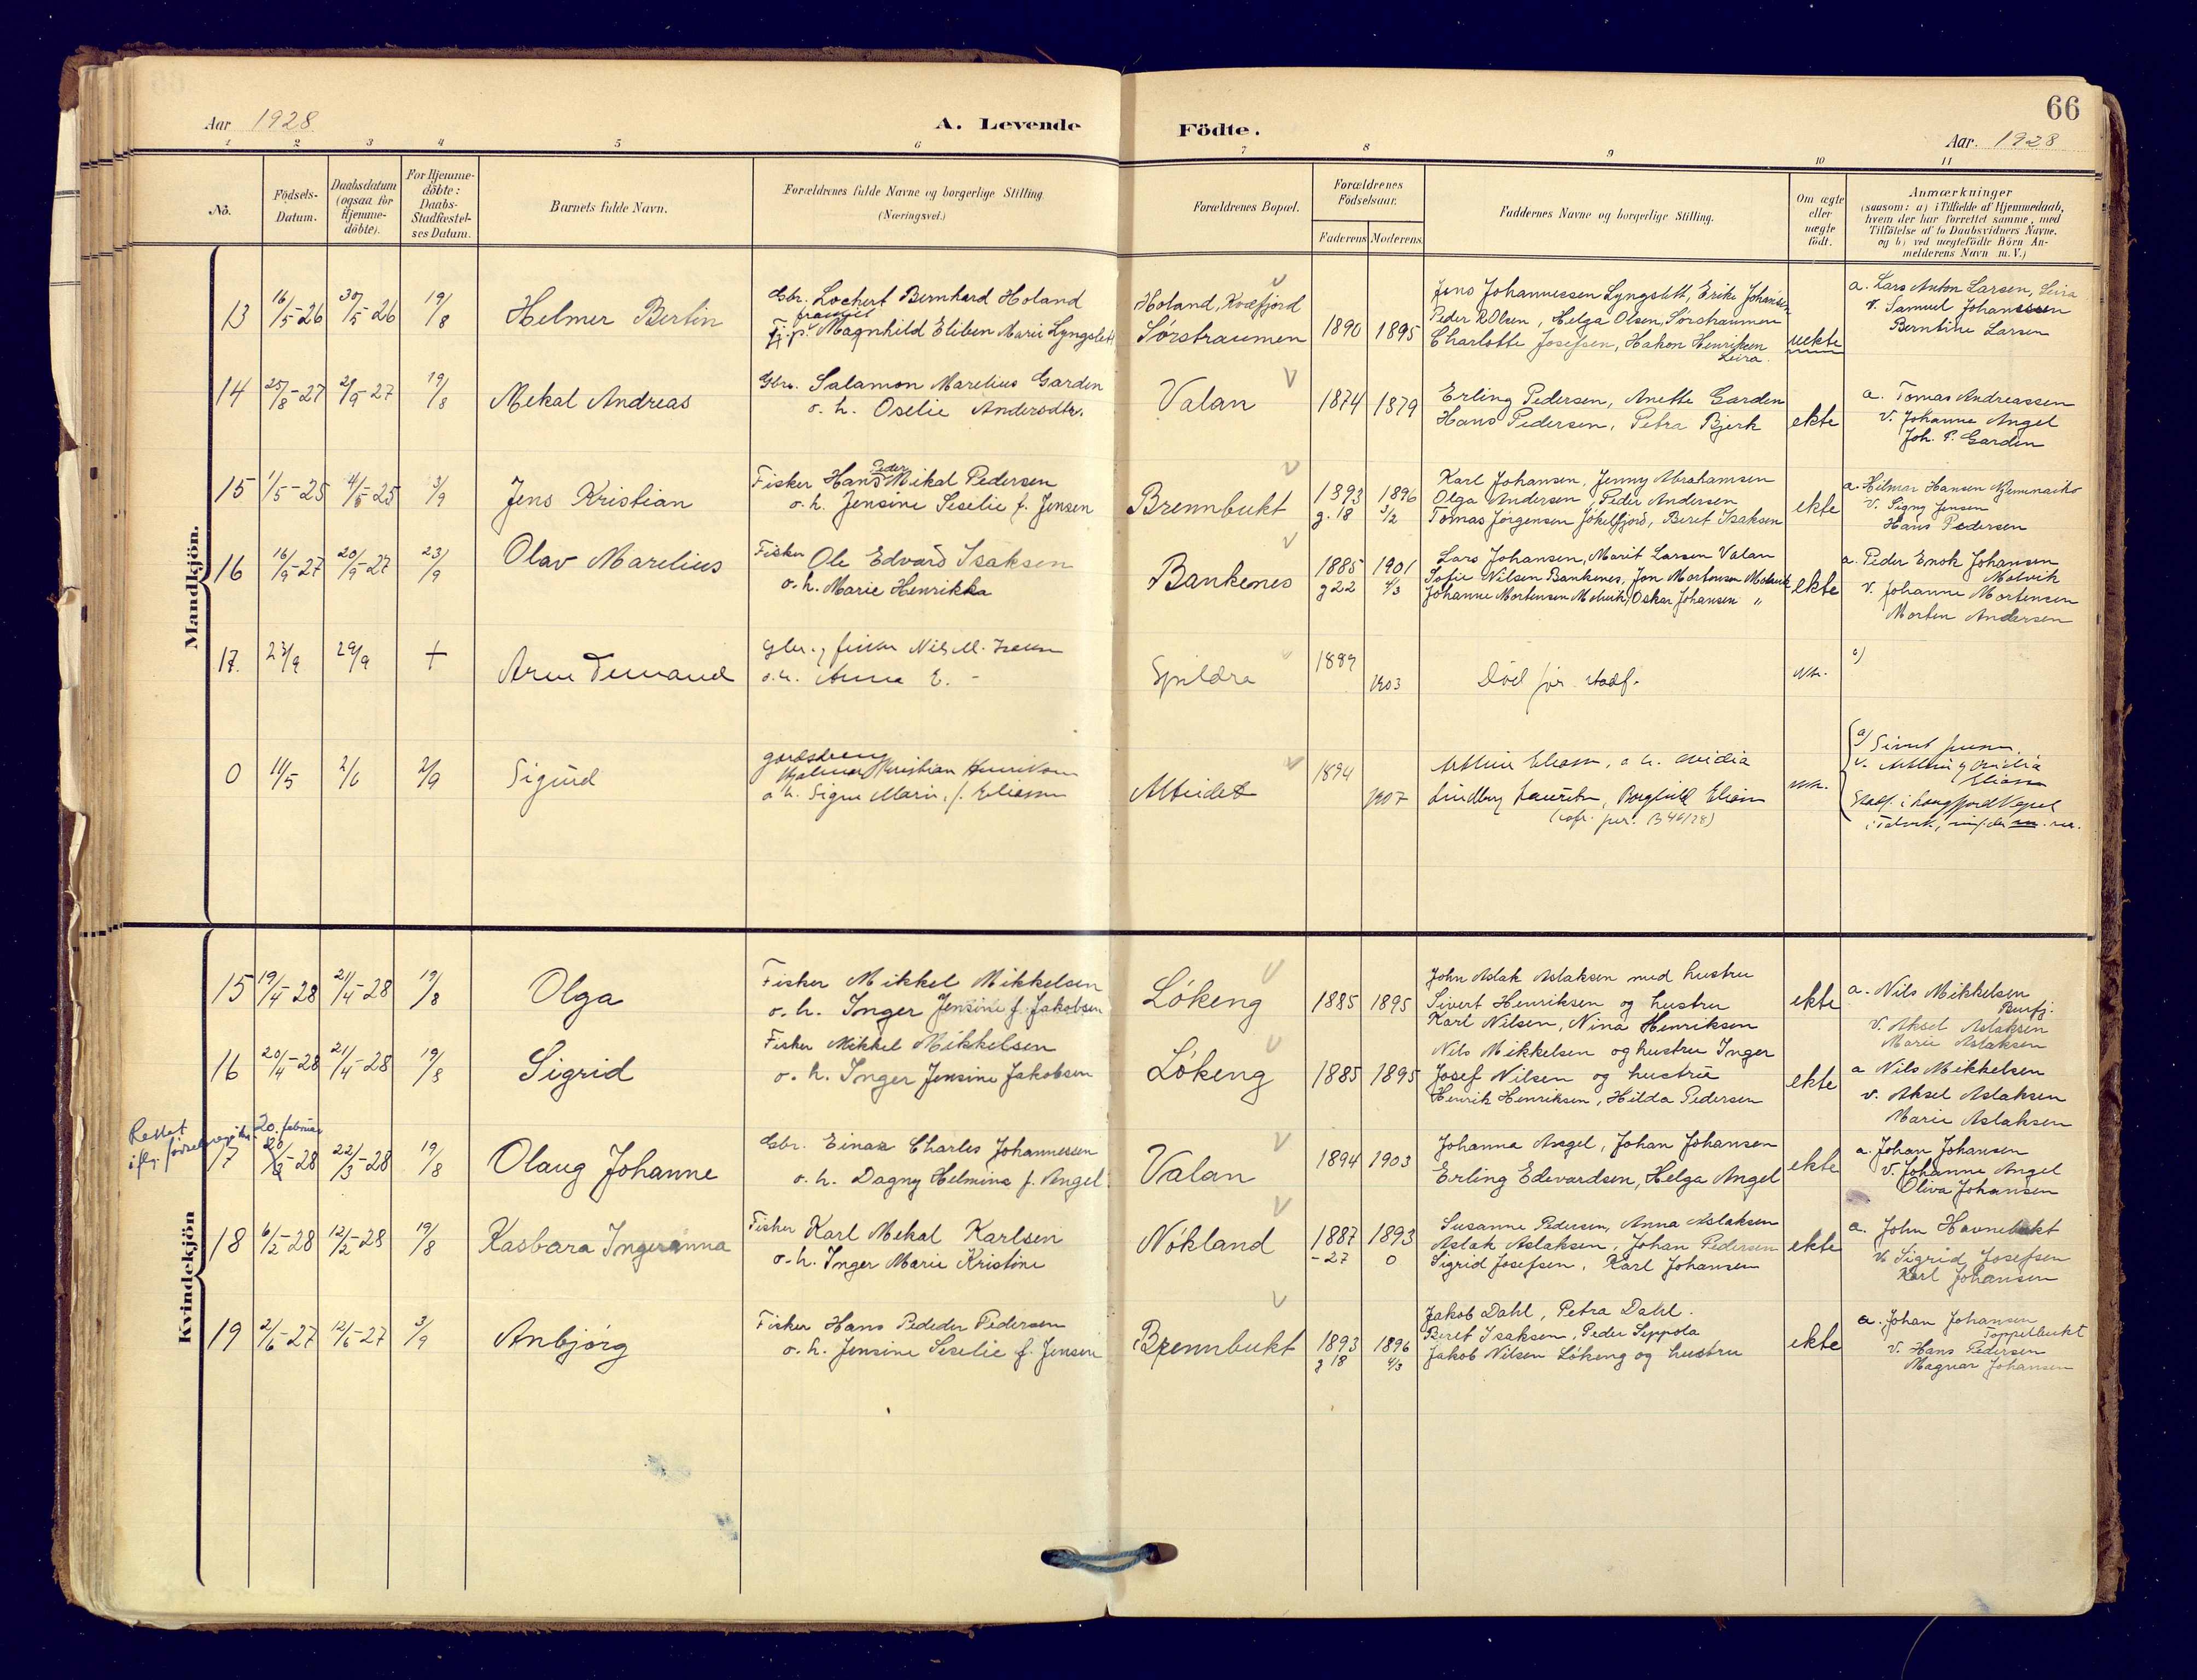 66
Aar 1928
A. Levende
Födte.
Aar. 1928
1 2 3 4 5 6 7 8 9 10 11
No.
Födsels-
Datum.
Daabsdatum
(ogsaa for
Hjemme-
döbte).
For Hjemme-
döbte:
Daabs-
Stadfæstel-
ses Datum.
Barnets fulde Navn.
Forældrenes fulde Navne og borgerlige Stilling
(Næringsvei.)
Forældrenes Bopæl.
Forældrenes
Födselsaar.
Faderens Moderens
Faddernes Navne og borgerlige Stilling.
Om ægte
eller
uægte
födt.
Anmærkninger
(saasom: a) i Tilfælde af Hjemmedaab,
hvem der har forrettet samme, med
Tilföielse af to Daabsvidners Navne.
og b) ved uægtefödte Börn An-
melderens Navn m.V.)
Mandkjön.
13
16/5-26
30/5-26
19/8
Helmer Bertin
Gbr. Lochert Bernhard Holand
fraskilt
Magnhild Eliben Marie Lyngslett
Holand, Kvæfjord
Sörstraumen
1890
1895
Jens Johannessen Lyngslett, Erika Johansen
Peder R Olsen, Helga Olsen, Sörstraumen
Charlotte Josefsen, Hakon Henriksen
Leira.
uekte
a. Lars Anton Larsen, Leira
v. Samuel Johanssen
Berntine Larsen
14
25/8-27
2/9-27
19/8
Mekal Andreas
Gbr. Salamon Marelius Garden
o. h. Oselie Andersdtr.
Valan
1874
1879
Erling Pedersen, Anette Garden
Hans Pedersen, Petra Bjerk
ekte
a. Tomas Andreassen
v. Johanne Angel
Joh. P. Garden
15
1/5-25
4/5-25
3/9
Jens Kristian
Peder
Fisker Hans Mikal Pedersen
o. h. Jensine Seselie f. Jensen
Brennbukt
1893
g. 18
1896
3/2
Karl Johansen, Jenny Abrahamsen
Olga Andersen, Peder Andersen
Tomas Jørgensen Jökelfjord, Beret Isaksen
ekte
a. Hilmar Hansen
v. Signy Jensen
Hans Pedersen
16
16/9-27
20/9-27
23/9
Olav Marelius
Fisker Ole Edvard Isaksen
o. h. Marie Henrikka
Bankenes
1885
g 22
1901
4/3
Lars Johansen, Marit Larsen Valan
Sofie Nilsen Bankenes, Jon Mortensen Malvik
Johanne Mortensen Malvik, Oskar Johansen "
ekte
a. Peder Enok Johansen
Malvik
v. Johanne Mortensen
Morten Andersen
17.
23/9
29/9
+
Gbr. og fisker Nils M. Isaksen
o. h. Anna E. -
Spildra
1889
1903
Död för stadf.
a)
0
11/5
2/6
2/9
Sigurd
gaardsdreng
Hjalmar Kristian Henriksen
o h. Signe Marie, f. Eliassen
Alteidet
1894
1907
Arthur Eliassen, o h.
Lindberg Lauritsen, Borghild Eliassen
a)
v. Arthur og
Eliassen
Stadf. i Langfjord Kapel
i Talvik,
Kvindekjön
15
19/4-28
21/4-28
19/8
Olga
Fisker Mikkel Mikkelsen
o. h. Inger Jensine f. Jakobsen
Lökeng
1885
1895
John Aslak Aslaksen med hustru
Sivert Henriksen og hustru
Karl Nilsen, Nina Henriksen
ekte
a. Nils Mikkelsen
Burfj.
v. Aksel Aslaksen
Marie Aslaksen
16
20/4-28
21/4-28
19/8
Sigrid
Fisker Mikkel Mikkelsen
o. h. Inger Jensine Jakobsen
Lökeng
1885
1895
Nils Mikkelsen og hustru Inger
Josef Nilsen og hustru
Henrik Henriksen, Hilda Pedersen
ekte
a Nils Mikkelsen
v. Aksel Aslaksen
Marie Aslaksen
Rettet
20. februar
17
20/2-28
22/3-28
19/8
Olaug Johanne
Gbr. Einar Charles Johannessen
o. h. Dagny Helmine f. Angel
Valan
1894
1903
Johanna Angel, Johan Johansen
Erling Edevardsen, Helga Angel
ekte
a. Johan Johansen
v. Johanne Angel
Oliva Johansen
18
6/2-28
12/2-28
19/8
Kasbara Ingeranna
Fisker Karl Mekal Karlsen
o. h. Inger Marie Kristine
Nökland
1887
-27
1893
0
Susanne Pedersen, Anna Aslaksen
Aslak Aslaksen, Johan Pedersen
Sigrid Josefsen, Karl Johansen
ekte
a. John Havnebukt
v. Sigrid Josefsen
Karl Johansen
19
2/6-27
12/6-27
3/9
Anbjörg
Fisker Hans Pededer Pedersen
o. h. Jensine Seselie f. Jensen
Brennbukt
1893
g 18
1896
4/3
Jakob Dahl, Petra Dahl.
Beret Isaksen, Peder Seppola
Jakob Nilsen Lökeng og hustru
ekte
a. Johan Johansen
Toppelbukt
v. Hans Pedersen
Magnar Johansen